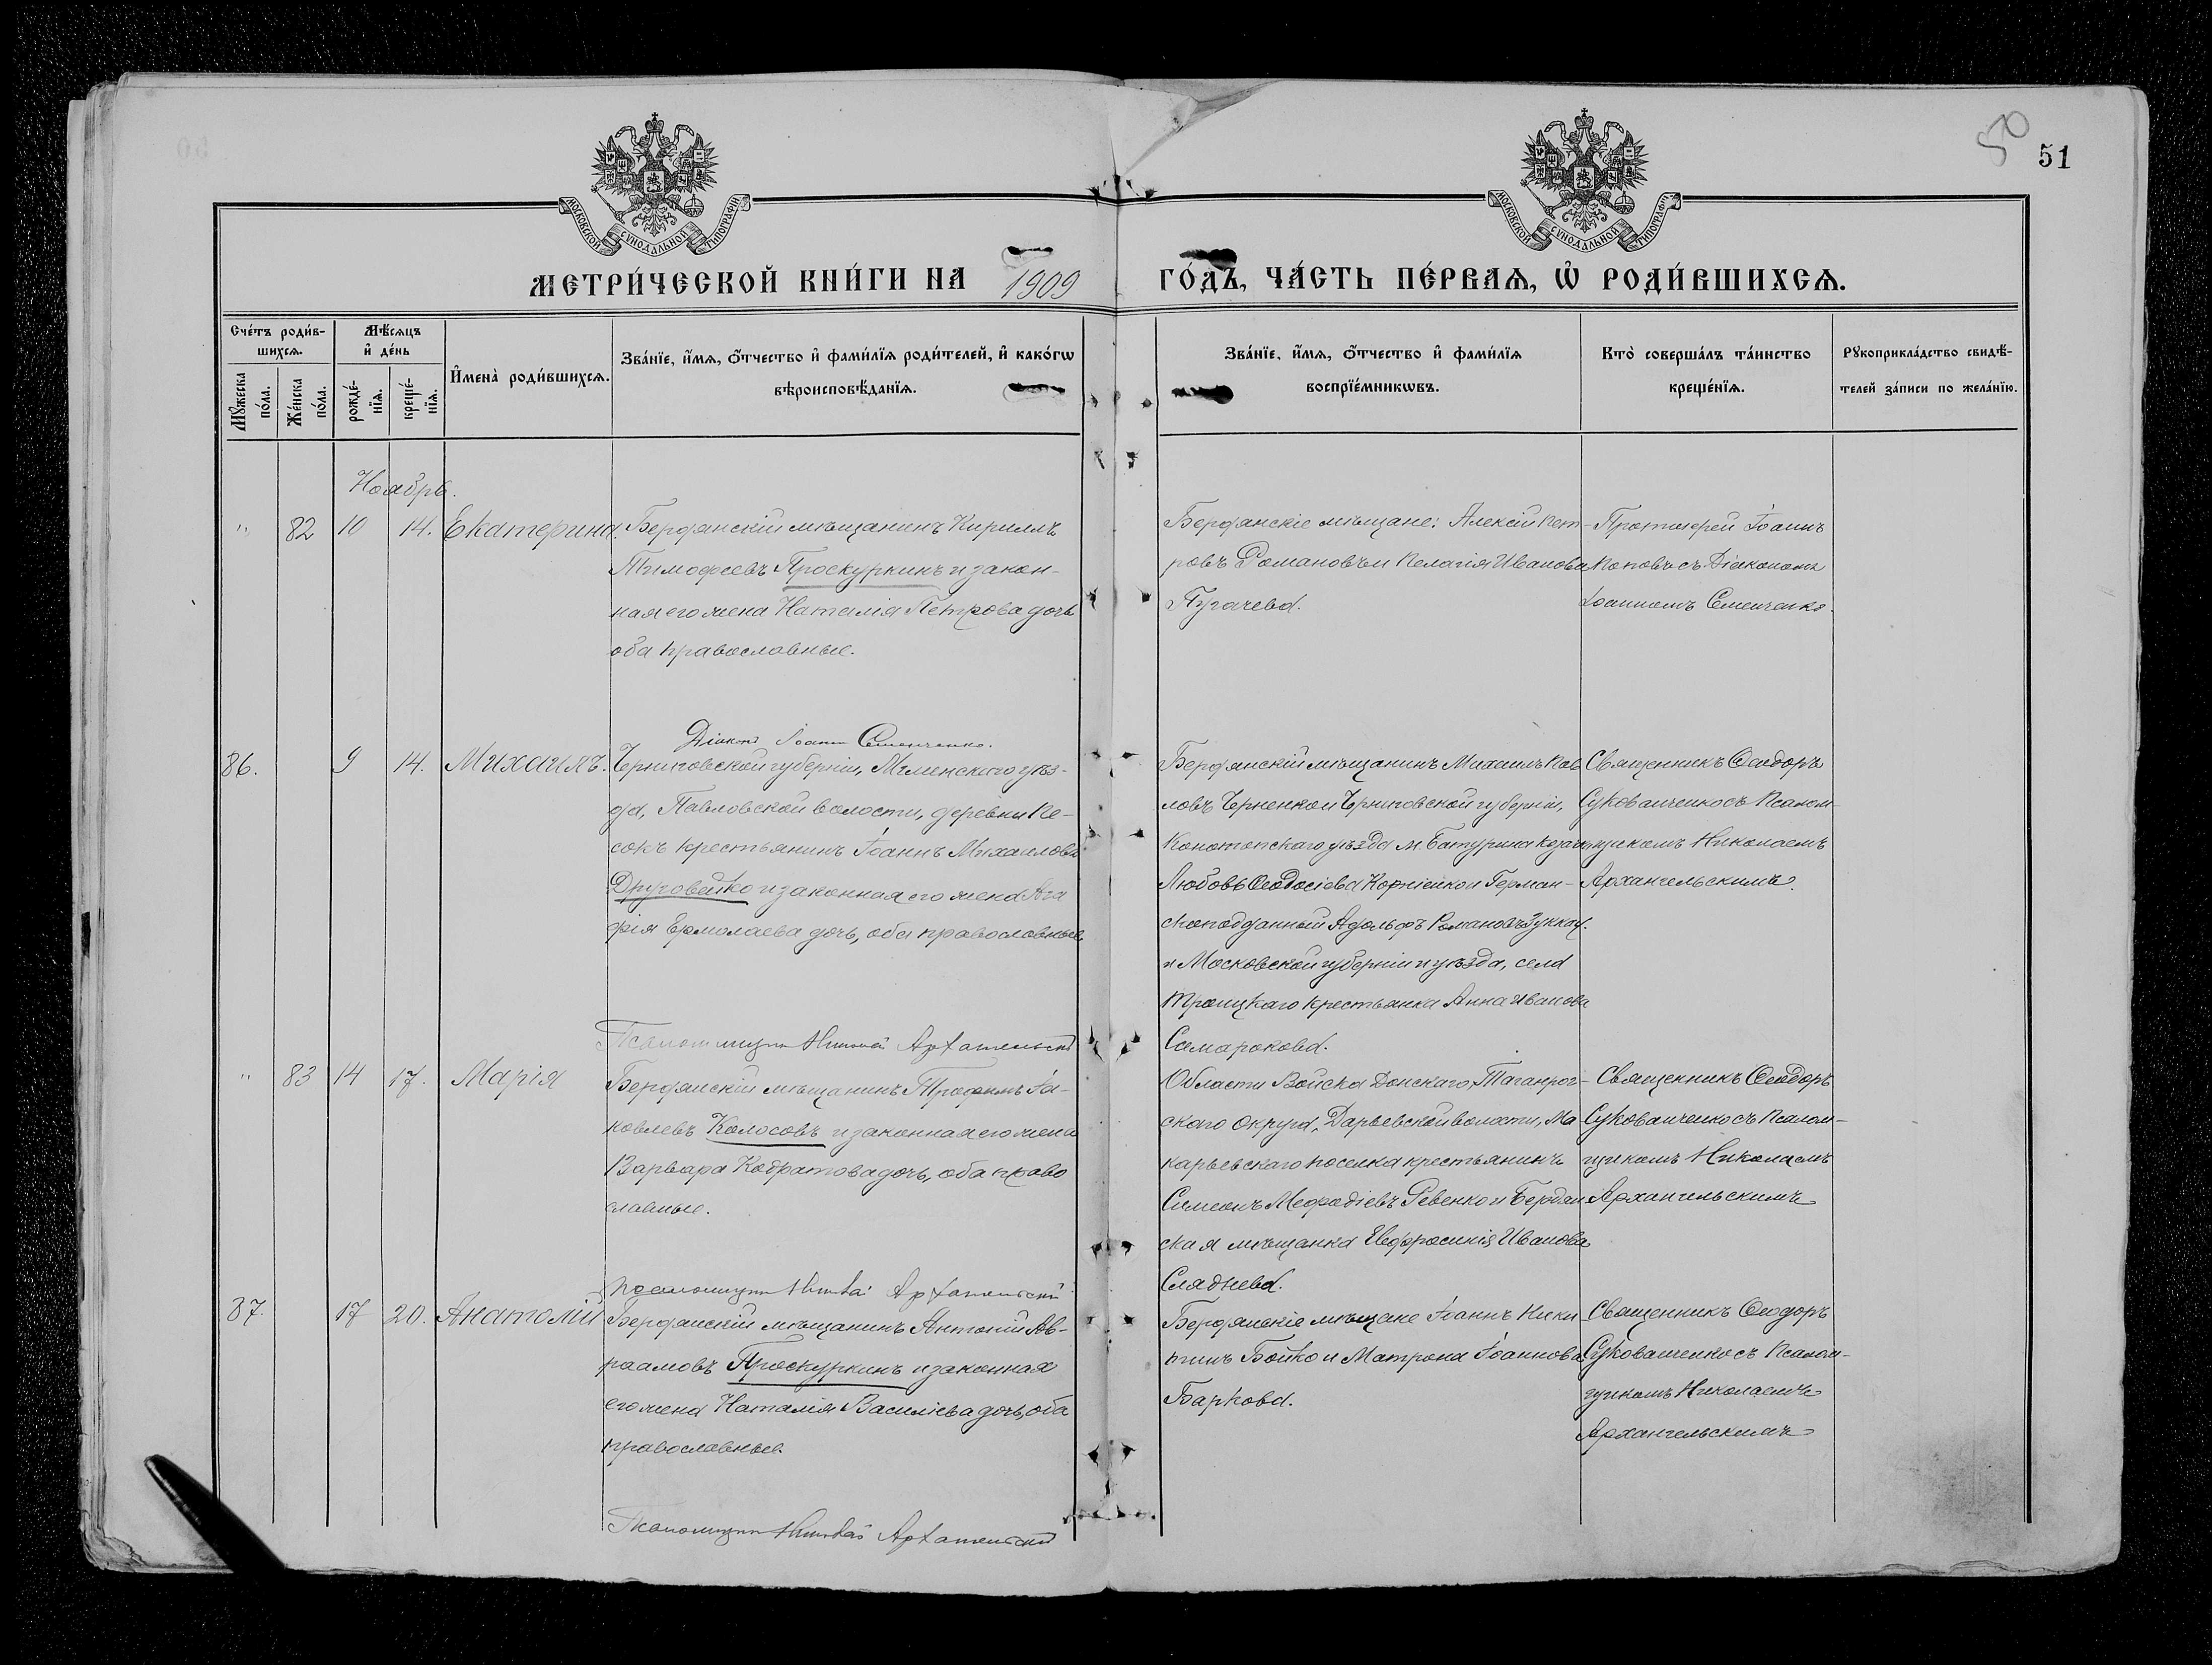 50
51
МОСКОВСКОЙ СѴНОДАЛЬНОЙ ТИПОГРАФІИ
МОСКОВСКОЙ СѴНОДАЛЬНОЙ ТИПОГРАФІИ
МЕТРИ́ЧЕСКОЙ КНИ́ГИ НА 1909 ГО́ДЪ, ЧА́СТЬ ПЕ́РВАѦ, Ѡ҆ РОДИ́ВШИХСѦ.
Сче́тъ роди́в-
шихсѧ.
Мꙋ́жеска по́ла.
Же́нска по́ла.
Мѣ́сѧцъ
и҆ де́нь
рожде́-
нїѧ.
креще́-
нїѧ.
И҆мена̀ роди́вшихсѧ.
Зва́нїе, и҆́мѧ, ѻ҆́тчество и҆ фами́лїѧ роди́телей, и҆ како́гѡ
вѣроисповѣ́данїѧ.
Зва́нїе, и҆́мѧ, ѻ҆́тчество и҆ фами́лїѧ
воспрїе́мникѡвъ.
Кто̀ соверша́лъ та́инство
креще́нїѧ.
Рꙋкоприкла́дство свидѣ́-
телей за́писи по жела́нїю.
Ноябрь.
" 82 10 14. Екатерина.
Бердянскій мѣщанинъ Кириллъ
Тимофеевъ Проскуркинъ и закон-
ная его жена Наталія Петрова дочь
оба православные.
Діаконъ Іоаннъ Семенченко.
Бердянскіе мѣщане: Алексій Пет-
ровъ Романовъ и Пелагія Иванова
Пугачева.
Протоіерей Іоаннъ
Поповъ съ Діакономъ
Іоанномъ Семенченко.
86. 9 14. Михаилъ.
Черниговской губерніи, Мглинскаго уѣз-
да, Павловской волости, деревни Пе-
сокъ крестьянинъ Іоаннъ Михаиловъ
Друговейко и законная его жена Ага
фія Ермолаева дочь, оба православные.
Псаломщикъ Николай Архангельскій
Бердянскій мѣщанинъ Михаилъ Пав
ловъ Черненко и Черниговской губерніи,
Конотопскаго уѣзда м. Батурина козачка
Любовь Ѳеодосіева Корніенко и Герман-
скоподданный Адольфъ Романовъ Зуккау.
и Московской губерніи и уѣзда, села
Троицкаго крестьянка Анна Иванова
Самарокова.
Священникъ Ѳеодоръ
Суковаченко съ Псалом-
щикомъ Николаемъ
Архангельскимъ.
" 83 14 17. Марія
Бердянскій мѣщанинъ Трофимъ Іа-
ковлевъ Колосовъ и законная его жена
Варвара Кодратова дочь, оба право
славные.
Псаломщикъ Николай Архангельскій
Области Войска Донскаго, Таганрог-
скаго округа, Дарьевской волости, Ма
карьевскаго поселка крестьянинъ
Симеонъ Мефодіевъ Ревенко и Бердян
ская мѣщанка Евфросинія Иванова
Сляднева.
Священникъ Ѳеодоръ
Суковаченко съ Псалом-
щикомъ Николаемъ
Архангельскимъ
87. 17 20. Анатолій
Бердянскій мѣщанинъ Антоній Ав-
раамовъ Проскуркинъ и законная
его жена Наталія Василіева дочь, оба
православные.
Псаломщикъ Николай Архангельскій
Бердянскіе мѣщане Іоаннъ Ники
тинъ Бойко и Матрона Іоаннова
Баркова.
Священникъ Ѳеодоръ
Суковаченко съ Псалом-
щикомъ Николаемъ
Архангельскимъ